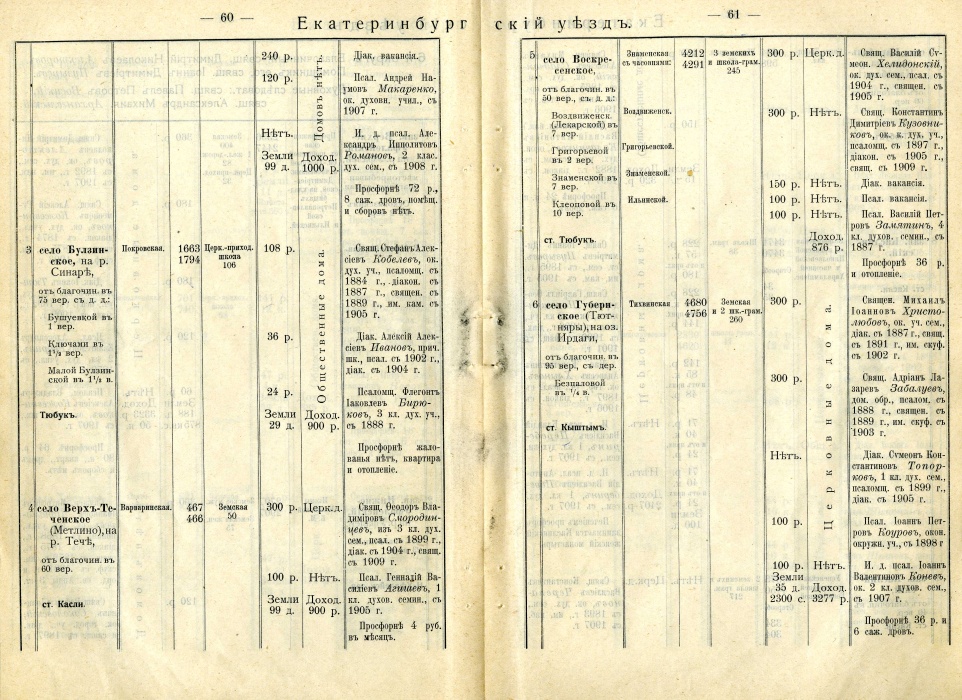 — 60 —
Екатеринбург
240 р.
Домовъ нѣтъ.
Діак. вакансія.
120 р.
Псал. Андрей На-
умовъ Макаренко,
ок. духовн. учил., съ
1907 г.
Нѣтъ.
Земли
99 д.
Доход.
1000 р.
И. д. псал. Але-
ксандръ Ипполитовъ
Романовъ, 2 клас.
дух. сем., съ 1908 г.
Просфорнѣ 72 р.,
8 саж. дровъ, помѣщ.
и сборовъ нѣтъ.
3
село Булзин-
ское, на р.
Синарѣ,
отъ благочин. въ
75 вер. съ д. д.:
Бушуевкой въ
1 вер.
Ключами въ
1½ вер.
Малой Булзин-
ской въ 1½ в.
Тюбукъ.
Покровская.
1663
1794
Церк.-приход.
школа
106
108 р.
Общественные дома.
Свящ. Стефанъ Алек-
сѣевъ Кобелевъ, ок.
дух. уч., псаломщ. съ
1884 г., діакон. съ
1887 г., священ. съ
1889 г., им. кам. съ
1905 г.
36 р.
Діак. Алексій Алек-
сіевъ Ивановъ, прич.
шк., псал. съ 1902 г.,
діак. съ 1904 г.
24 р.
Земли
29 д.
Доход.
900 р.
Псаломщ. Флегонтъ
Іаковлевъ Бирю-
ковъ, 3 кл. дух. уч.,
съ 1888 г.
Просфорнѣ жало-
ванья нѣтъ, квартира
и отопленіе.
4
село Верхъ-Те-
ченское
(Метлино), на
р. Течѣ,
отъ благочин. въ
60 вер.
ст. Касли.
Варваринская.
467
466
Земская
50
300 р.
Церк.д.
Свящ. Ѳеодоръ Вла-
диміровъ Смородин-
цевъ, изъ 3 кл. дух.
сем., псал. съ 1899 г.,
діак. съ 1904 г., свящ.
съ 1909 г.
100 р.
Земли
99 д.
Нѣтъ.
Доход.
900 р.
Псал. Геннадій Ва-
силіевъ Агишевъ, 1
кл. духов. семин., съ
1905 г.
Просфорнѣ 4 руб.
въ мѣсяцъ.
— 61 —
скій уѣздъ.
5
село Воскре-
сенское,
отъ благочин. въ
50 вер., съ д. д.:
Воздвиженск.
(Лекарской) въ
7 вер.
Григорьевой
въ 2 вер.
Знаменской въ
7 вер.
Клеоповой въ
10 вер.
ст. Тюбукъ.
Знаменская
съ часовнями:
Воздвиженск.
Григорьевской.
Знаменской.
Ильинской.
4212
4291
3 земскихъ
и школа-грам.
245
300 р.
Церк.д.
Свящ. Василій Сѵ-
меон. Хелидонскій,
ок. дух. сем., псал. съ
1904 г., священ. съ
1905 г.
300 р.
Нѣтъ.
Свящ. Константинъ
Димитріевъ Кузовни-
ковъ, ок. к. дух. уч.,
псаломщ. съ 1897 г.,
діакон. съ 1905 г.,
свящ. съ 1909 г.
150 р.
Нѣтъ.
Діак. вакансія.
100 р.
Нѣтъ.
Псал. вакансія.
100 р.
Нѣтъ.
Доход.
876 р.
Псал. Василій Пет-
ровъ Замятинъ, 4
кл. духов. семин., съ
1887 г.
Просфорнѣ 36 р.
и отопленіе.
6
село Губерн-
ское (Тют-
няры), на оз.
Ирдаги,
отъ благочин. въ
95 вер., съ дер.
Безпаловой
въ ¼ в.
ст. Кыштымъ.
Тихвинская
4680
4756
Земская
и 2 шк.-грам.
260
300 р.
Церковные дома.
Священ. Михаилъ
Іоанновъ Христо-
любовъ, ок. уч. сем.,
діак. съ 1887 г., свящ.
съ 1891 г., им. скуф.
съ 1902 г.
300 р.
Свящ. Адріанъ Ла-
заревъ Забалуевъ,
дом. обр., псалом. съ
1888 г., священ. съ
1889 г., им. скуф. съ
1903 г.
Нѣтъ.
Діак. Сѵмеонъ Кон-
стантиновъ Топор-
ковъ, 1 кл. дух. сем.,
псаломщ. съ 1899 г.,
діак. съ 1905 г.
100 р.
Псал. Іоаннъ Пет-
ровъ Коуровъ, окон.
окружн. уч., съ 1898 г
100 р.
Земли
35 д.
2300 с.
Нѣтъ.
Доход.
3277 р.
И. д. псал. Іоаннъ
Валентиновъ Коневъ,
ок. 2 кл. духов. сем.,
съ 1907 г.
Просфорнѣ 36 р. и
6 саж. дровъ.